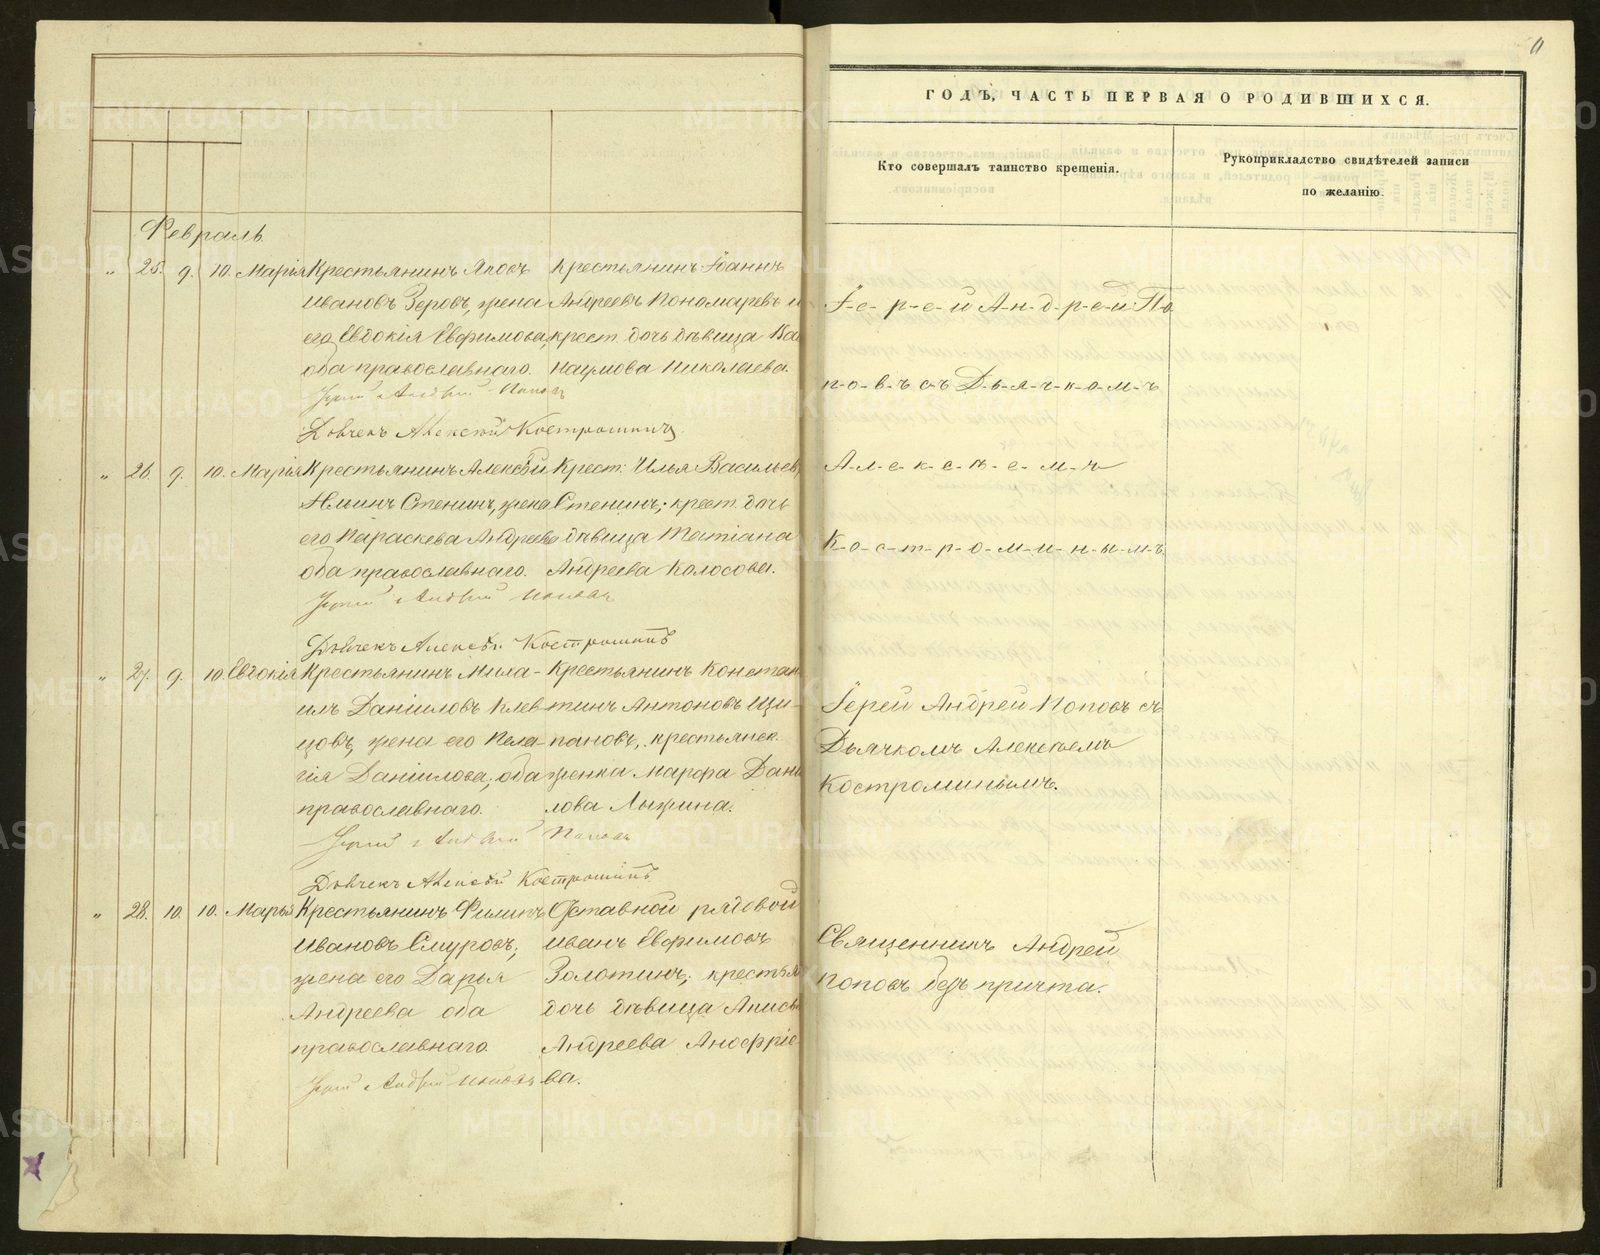 11
ГОДЪ, ЧАСТЬ ПЕРВАЯ О РОДИВШИХСЯ.
Кто совершалъ таинство крещенія.
Рукоприкладство свидѣтелей записи
по желанію.
Февраль.
" 25. 9. 10. Марія Крестьянинъ Яковъ Крестьянинъ Іоаннъ
Ивановъ Зеровъ, жена Андреевъ Пономаревъ и
его Евдокія Евфимова, крест. дочь дѣвица
оба православнаго. Наумова Николаева.
Іерей Андрей Поповъ
Дьячекъ Алексѣй Костроминъ
Іе-р-е-й А-н-д-р-е-й По
п-о-в-ъ съ Д-ь-я-ч-к-о-м-ъ
А-л-е-к-с-ѣ-е-м-ъ
К-о-с-т-р-о-м-и-н-ы-м-ъ
" 26. 9. 10. Марія Крестьянинъ Алексѣй Крест. Илья Васильевъ
Стенинъ, жена Стенинъ; крест. дочь
его Параскева Андреева дѣвица Татіана
оба православнаго. Андреева Колосова.
Іерей Андрей Поповъ
Дьячекъ Алексѣй Костроминъ
" 27. 9. 10. Евдокія Крестьянинъ Миха- Крестьянинъ Констан
илъ Даніиловъ Клев- тинъ Антоновъ Щи-
цовъ, жена его Пела- пановъ, крестьянск.
гія Даніилова, оба женка Марфа Дани
православнаго. лова Лыжина.
Іерей Андрей Поповъ
Дьячекъ Алексѣй Костроминъ
Іерей Андрей Поповъ съ
Дьячкомъ Алексѣемъ
Костроминымъ.
" 28. 10. 10. Марья Крестьянинъ Филипъ Отставной рядовой
Ивановъ Смуровъ, Иванъ Евфимовъ
жена его Дарья Золотинъ; крестья
Андреева оба дочь дѣвица Анисья
православнаго. Андреева Аноффріе
Іерей Андрей Поповъ ва.
Священникъ Андрей
Поповъ безъ причта.